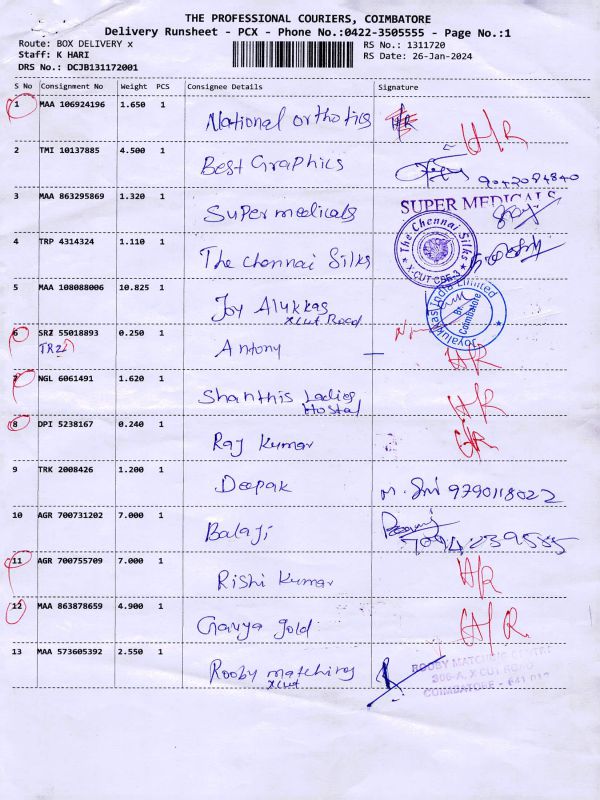 THE PROFESSIONAL COURIERS, COIMBATORE
Delivery Runsheet - PCX - Phone No.:0422-3505555 - Page No.:1
Route: BOX DELIVERY x RS No.: 1311720
Staff: K HARI RS Date: 26-Jan-2024
DRS No.: DCJB131172001
S No Consignment No Weight PCS Consignee Details Signature
1 MAA 106924196 1.650 1 National orthotics H/R H/R
2 TMI 10137885 4.500 1 Best Graphics 9042084840
3 MAA 863295869 1.320 1 Super medicals SUPER MEDICALS
4 TRP 4314324 1.110 1 The Chennai Silks The Chennai Silks X-CUT CBE-3
5 MAA 108088006 10.825 1 Joy Alukkas Joyalukkas India Limited Br. Coimbatore
xcut Road
6 SRZ 55018893 0.250 1 Antony H/R
7 NGL 6061491 1.620 1 Shanthis Ladies H/R
Hostal
8 DPI 5238167 0.240 1 Raj Kumar H/R
9 TRK 2008426 1.200 1 Deepak 9790118022
10 AGR 700731202 7.000 1 Balaji 7094239585
11 AGR 700755709 7.000 1 Rishi Kumar H/R
12 MAA 863878659 4.900 1 Ganya gold H/R.
13 MAA 573605392 2.550 1 Rooby matching ROOBY MATCHING CENTRE
xcut 306-A, X CUT ROAD
COIMBATORE - 641 012